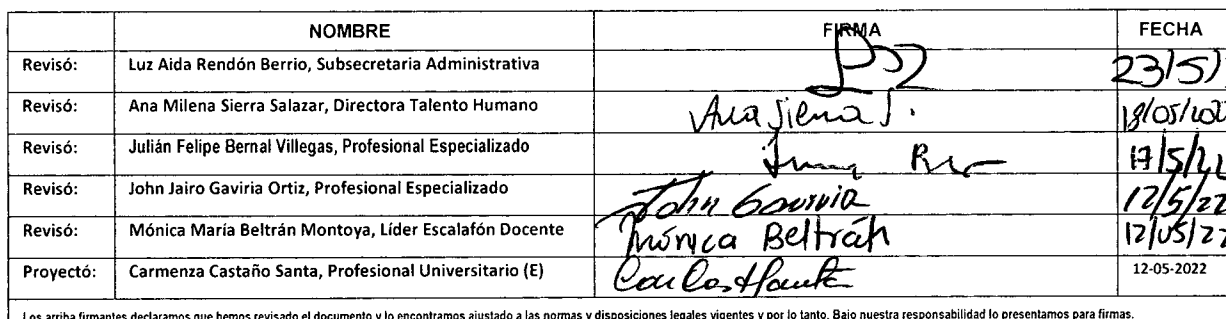 NOMBRE FIRMA FECHA
Revisó: Luz Aida Rendón Berrio, Subsecretaria Administrativa 23/5/
Revisó: Ana Milena Sierra Salazar, Directora Talento Humano Ana Sierra S. 18/05/202
Revisó: Julián Felipe Bernal Villegas, Profesional Especializado 17/5/22
Revisó: John Jairo Gaviria Ortiz, Profesional Especializado John Gaviria 12/5/22
Revisó: Mónica María Beltrán Montoya, Líder Escalafón Docente Mónica Beltrán 12/05/22
Proyectó: Carmenza Castaño Santa, Profesional Universitario (E) 12-05-2022
Los arriba firmantes declaramos que hemos revisado el documento y lo encontramos ajustado a las normas y disposiciones legales vigentes y por lo tanto, Bajo nuestra responsabilidad lo presentamos para firmas.